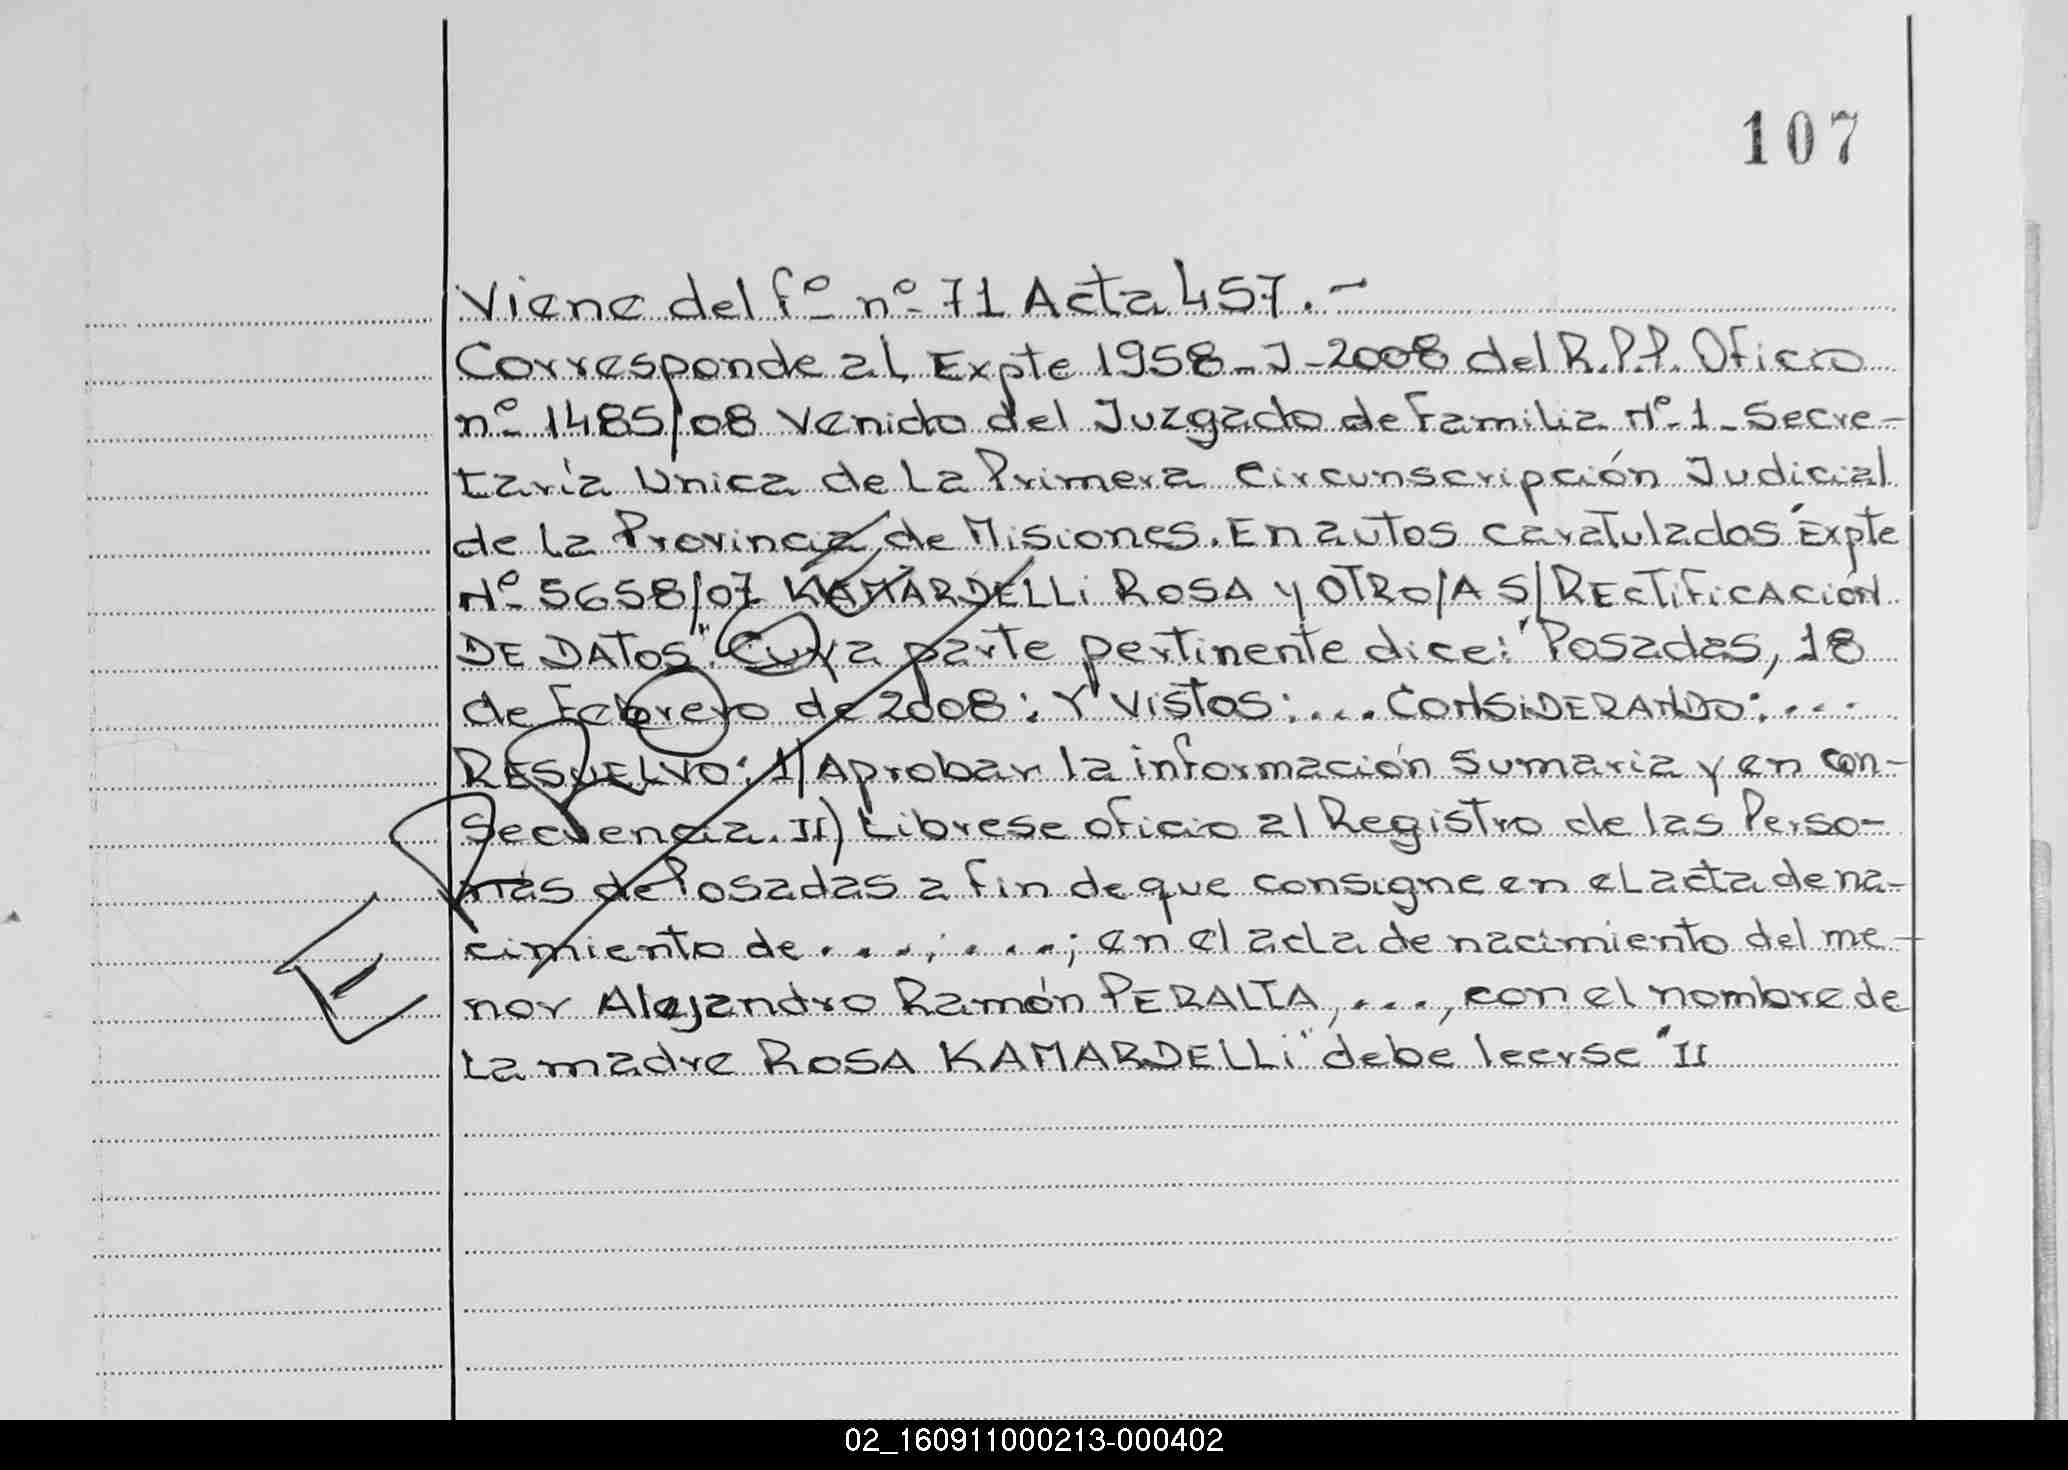 107
Viene del fº nº 71 Acta 457.-
Corresponde al Expte 1958-J-2008 del R.P.P. Oficio
nº 1485/08 Venido del Juzgado de Familia Nº 1 - Secre-
taría Unica de La Primera Circunscripción Judicial
de la Provincia de Misiones. En autos caratulados "Expte
Nº 5658/07 KAMARDELLi ROSA y OTRO/A S/RECTiFiCACiÓN
DE DATOS". Cuya parte pertinente dice: "Posadas, 18
de Febrero de 2008: Y Vistos:.... CONSiDERANDO:....
RESUELVO: 1) Aprobar la información Sumaria y en con-
Secuencia. II) Librese oficio al Registro de las Perso-
nas de Posadas a fin de que consigne en el acta de na-
cimiento de ....;....; en el acta de nacimiento del me-
nor Alejandro Ramón PERALTA, ...., con el nombre de
La madre ROSA KAMARDELLi" debe leerse "II
ERROR
02_160911000213-000402